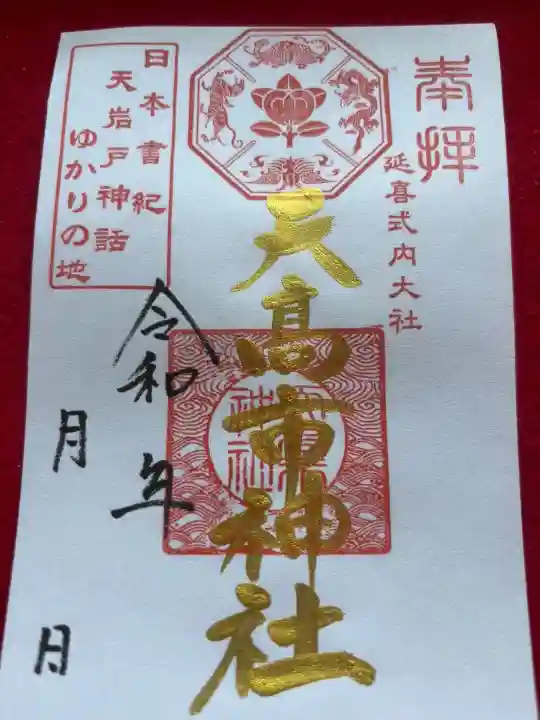 奉拝
延喜式内大社
天高市神社
令和 年
月
日
日本書紀
天岩戸神話
ゆかりの地